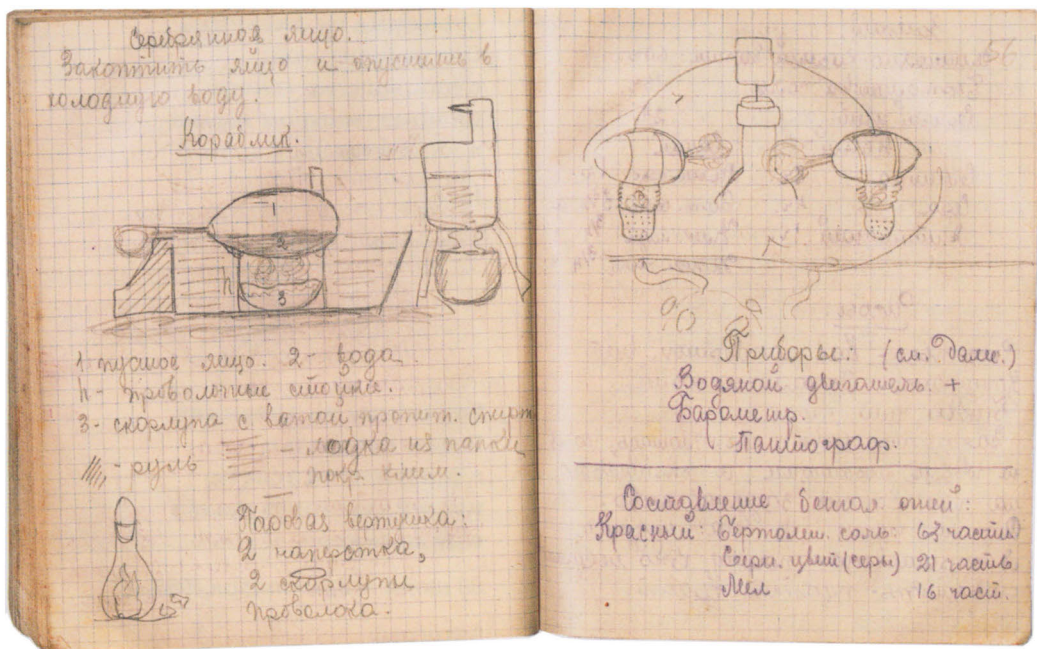 Серебрянное яйцо.
Закоптить яйцо и опустить в
холодную воду.
Кораблик.
1
2
h
3
1 пустое яйцо. 2- вода
h- проволочные стойки.
3- скорлупа с ватой пропит. спирт
- руль
- лодка из папки
покр. клеем.
Паровая вертушка:
2 наперстка,
2 скорлупы
проволока.
Приборы. (см. далее.)
Водяной двигатель. +
Барометр.
Пантограф.
Составление бенгал огней:
Красный: Бертолет. соль: 63 части
Серн. цвет (серы) 21 часть
Мел 16 част.